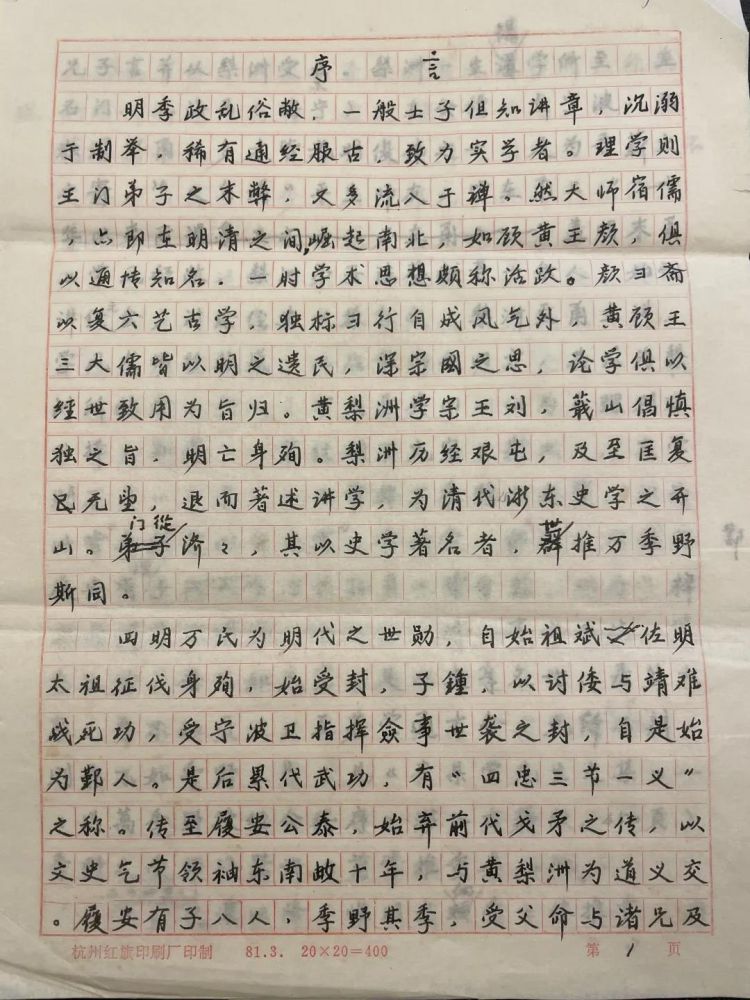 序言
明季政乱俗敝，一般士子但知讲章，沉溺
于制举，稀有通经服古，致力实学者。理学则
王门弟子之末弊，又多流入于禅。然大师宿儒
，亦即在明清之间，崛起南北，如顾黄王颜，俱
以通博知名，一时学术思想颇称活跃。颜习斋
以复六艺古学，独标习行自成风气外，黄顾王
三大儒皆以明之遗民，深宗國之思，论学俱以
经世致用为旨归。黄梨洲学宗王刘，蕺山倡慎
独之旨，明亡身殉。梨洲历经艰屯，及至匡复
已无望，退而著述讲学，为清代浙东史学之开
山。门徒济々，其以史学著名者，世推万季野
斯同。
四明万氏为明代之世勋，自始祖斌佐明
太祖征伐身殉，始受封，子鍾，以讨倭与靖难
战死功，受宁波卫指挥佥事世袭之封，自是始
为鄞人。是后累代武功，有“四忠三节一义”
之称。传至履安公泰，始弃前代戈矛之传，以
文史气节领袖东南数十年，与黄梨洲为道义交
。履安有子八人，季野其季，受父命与诸兄及
杭州红旗印刷厂印制 81.3. 20×20=400 第 1 页